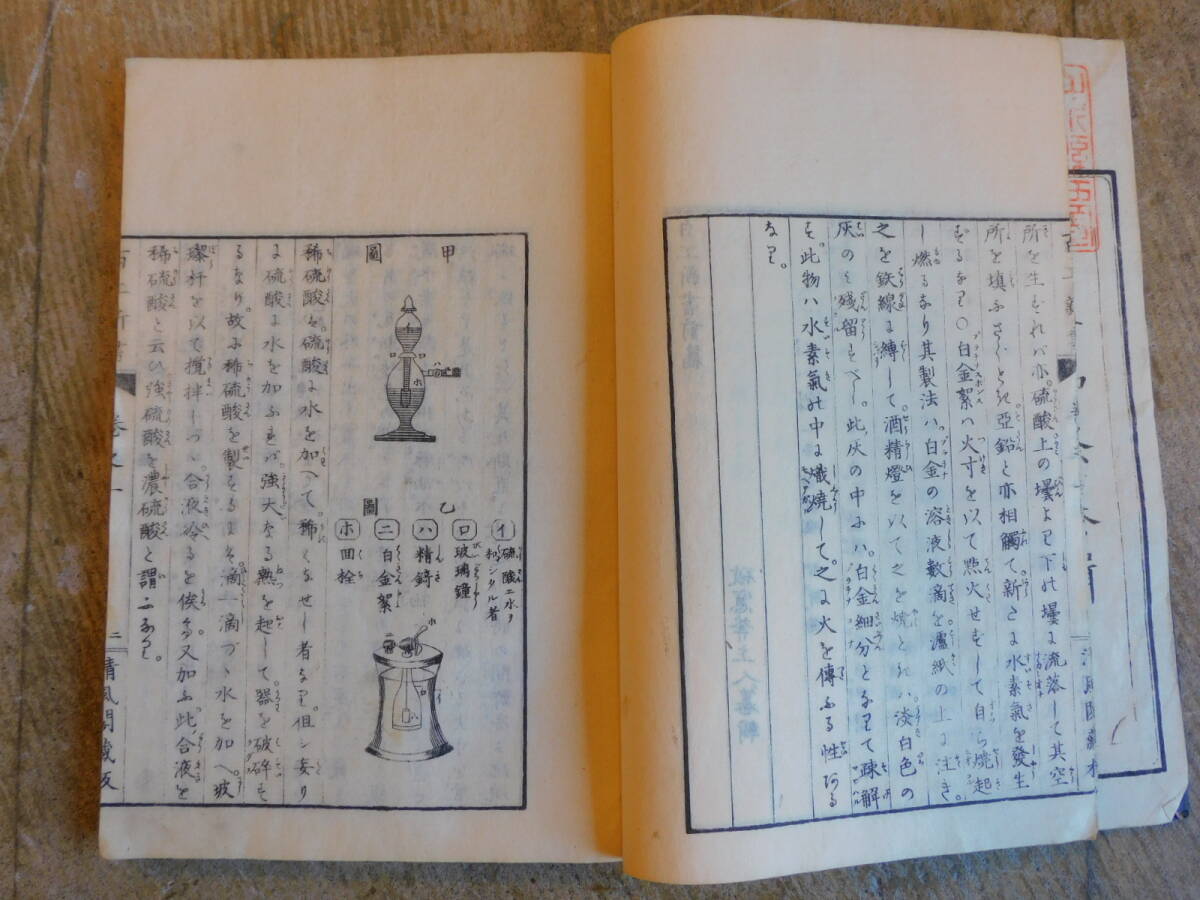 所を生ずれバ亦硫酸上の壜より下の壜に流落して其空
所を填ふさぐとき亜鉛と亦相觸て新さに水素氣を發生
するなり○白金絮ハ火寸を以て㸃火せずして自ら燒起
し燃るなり其製法ハ白金の溶液數滴を濾紙の上に注ぎ
之を鉄線に縛して酒精燈を以て之を焼くときハ淡白色の
灰のミ残留すべし此灰の中にハ白金細分となりて疎解
す此物ハ水素氣の中に熾燒して之に火を傳ふる性ある
なり。
甲圖
乙圖
イ 硫酸ニ水ヲ和シタル者
ロ 玻璃鐘
ハ 精錡
ニ 白金絮
ホ 回栓
稀硫酸ハ硫酸に水を加へて稀くなせし者なり但シ妄り
に硫酸に水を加ふれば強大なる熱を起して器を破碎す
るなり故に稀硫酸を製するにハ滴一滴づゝ水を加へ玻
璨杆を以て攪拌しつゝ合液冷るを俟て又加ふ此合液を
稀硫酸と云ひ強硫酸を濃硫酸と謂ふなり。
卷之一
二
清風閣藏板